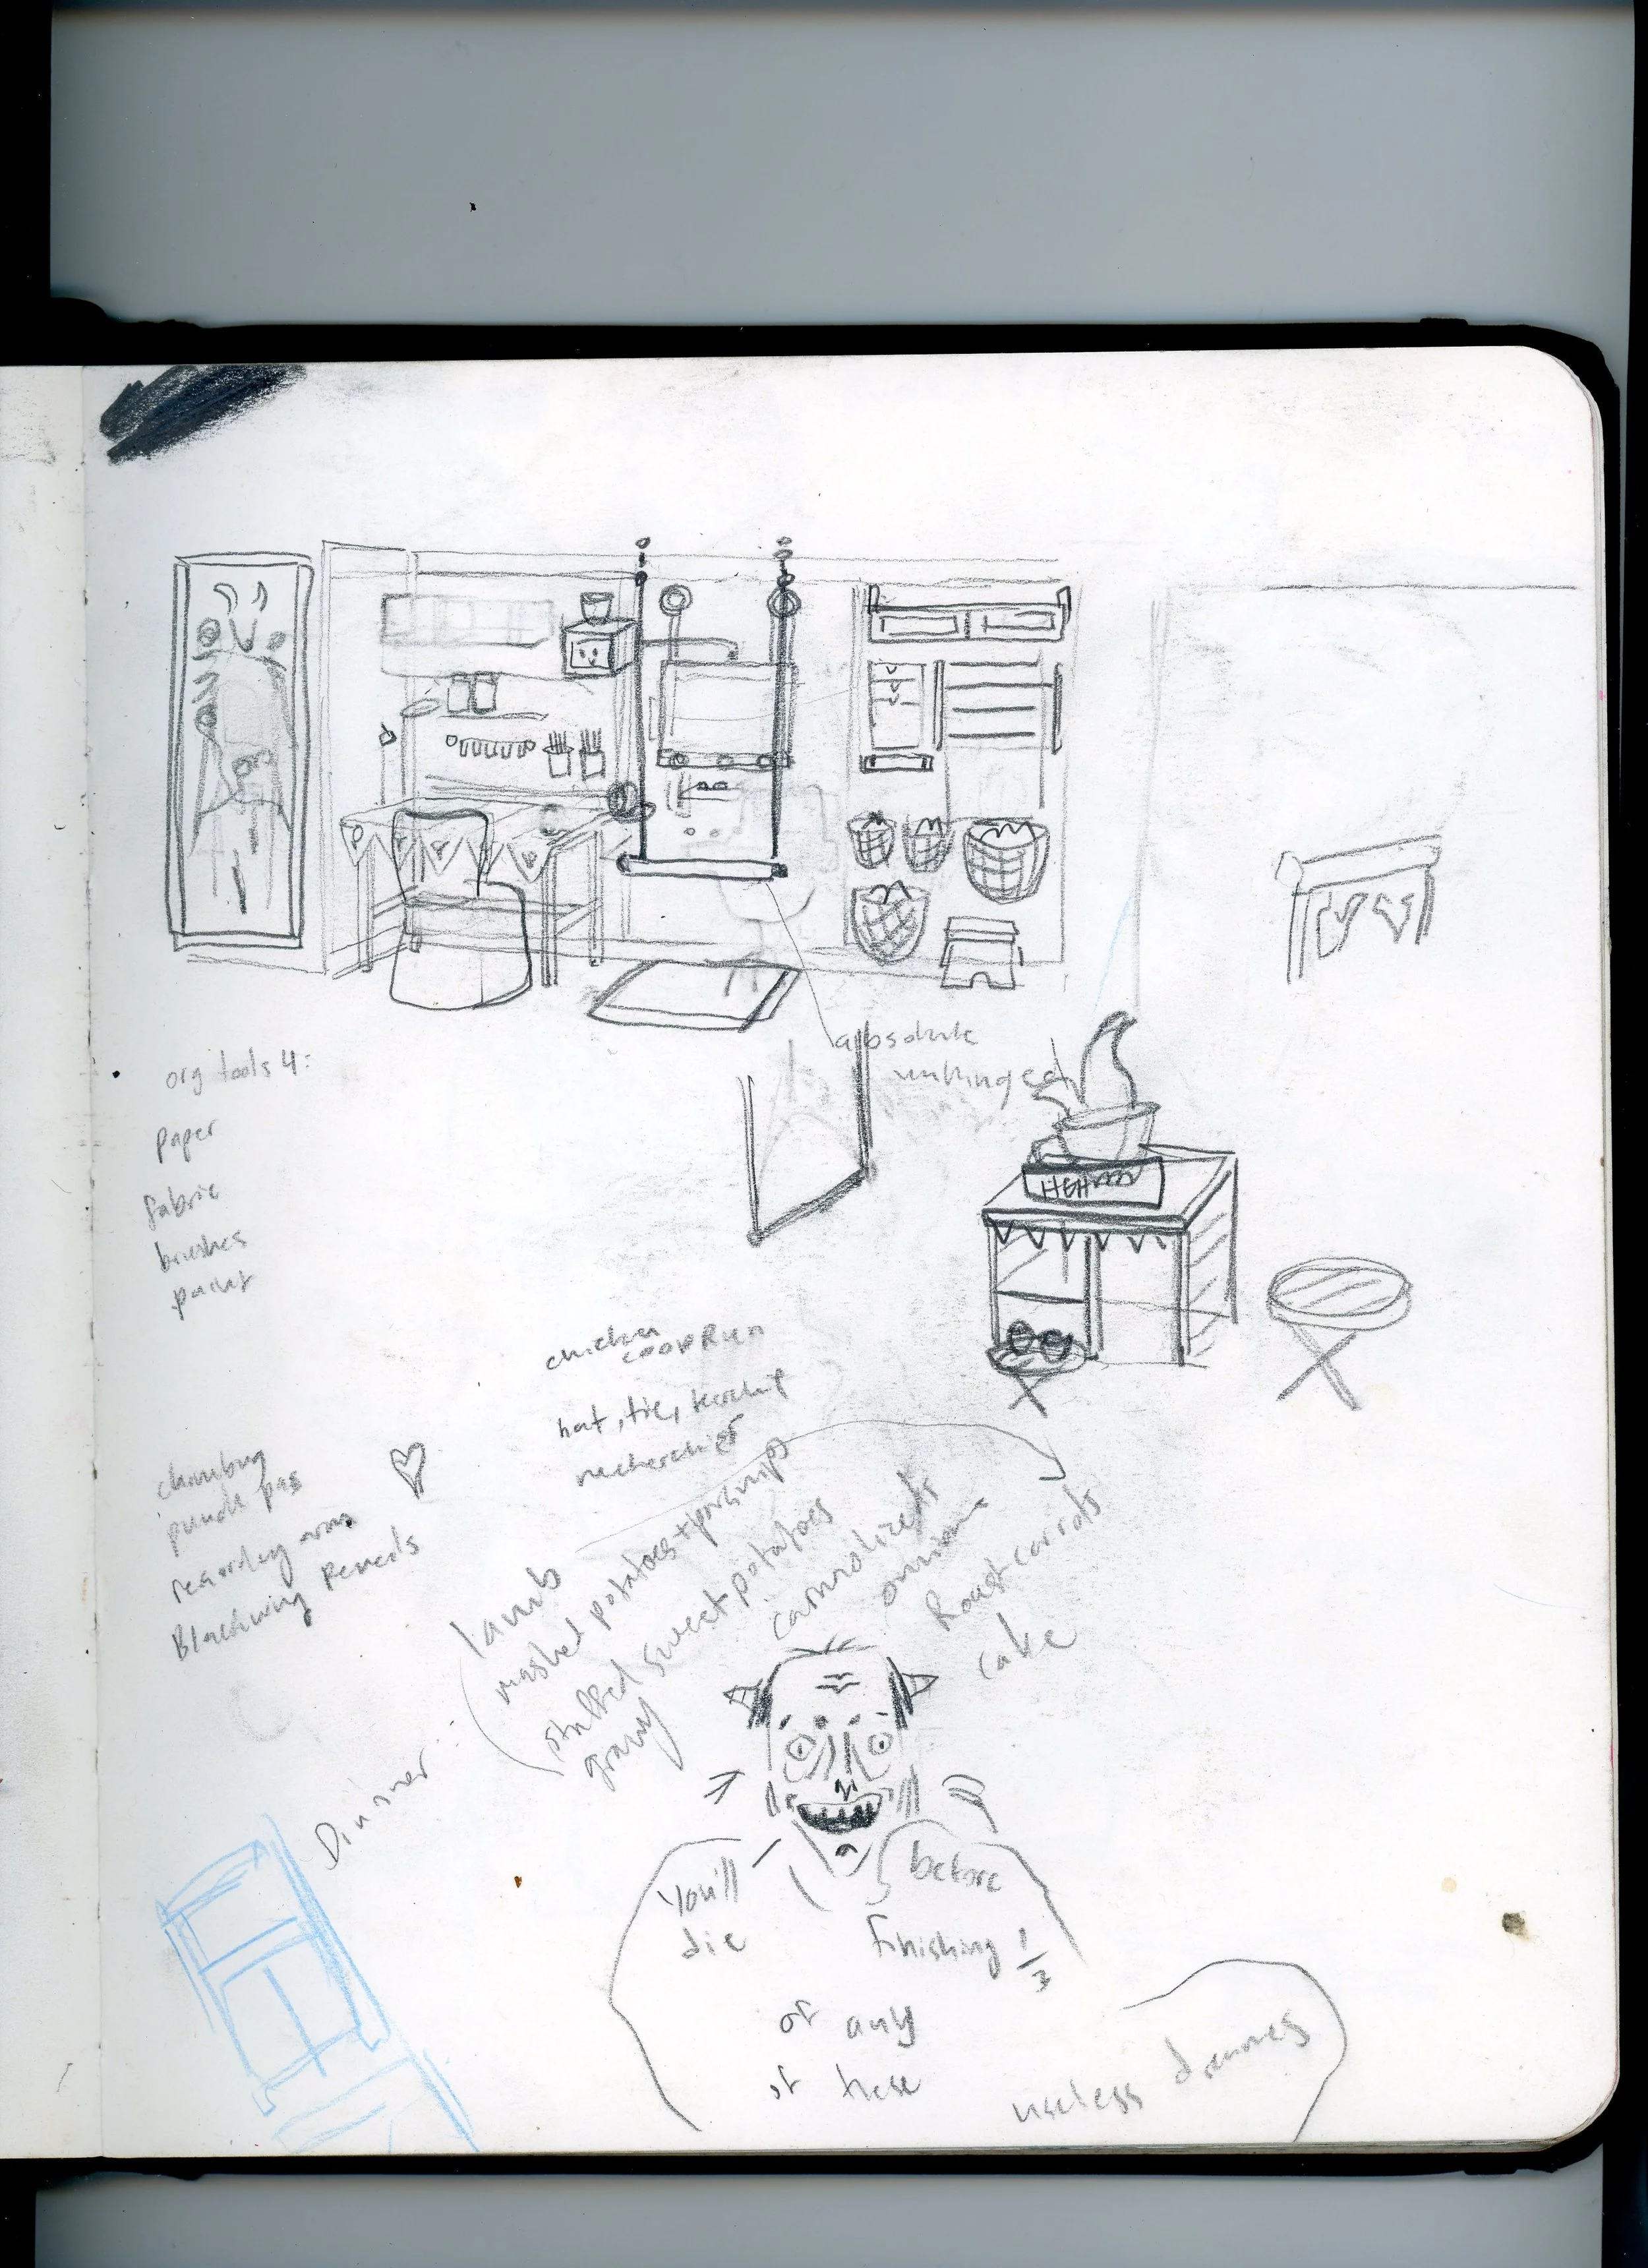 absolute
unhinged
org tools 4:
paper
fabric
brushes
paint
HEH
chicken
coop Run
hat, tie, kerchief
pencil pas
recording
Blackwing Pencils
Dinner:
lamb
mashed potatoes + parsnips
stuffed sweet potatoes
gravy
onions
Roast carrots
cake
You'll
die
before
finishing 1/3
of any
of these
useless